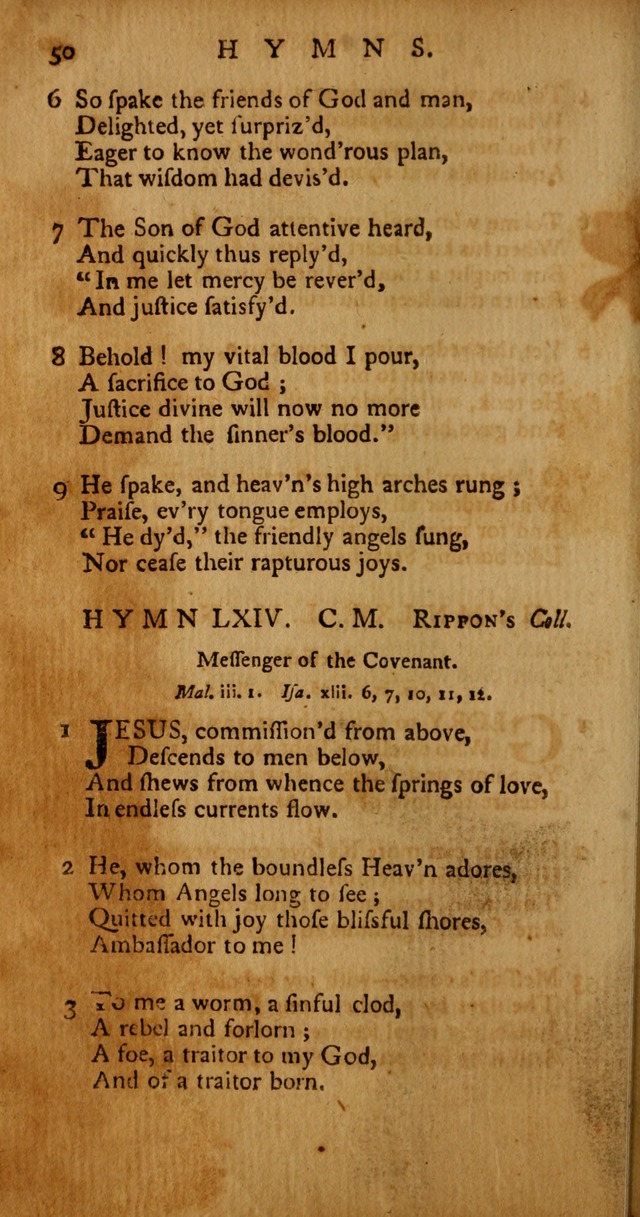 50 HYMNS.
6 So ſpake the friends of God and man,
Delighted, yet ſurpriz'd,
Eager to know the wond'rous plan,
That wiſdom had devis'd.
7 The Son of God attentive heard,
And quickly thus reply'd,
“In me let mercy be rever'd,
And juſtice ſatisfy'd.
8 Behold ! my vital blood I pour,
A ſacrifice to God ;
Juſtice divine will now no more
Demand the ſinner's blood.”
9 He ſpake, and heav'n's high arches rung ;
Praiſe, ev'ry tongue employs,
“ He dy'd,” the friendly angels ſung,
Nor ceaſe their rapturous joys.
HYMN LXIV. C. M. RIPPON's Coll.
Meſſenger of the Covenant.
Mal. iii. 1. Iſa. xlii. 6, 7, 10, 11, 12.
1 JESUS, commiſſion'd from above,
Deſcends to men below,
And ſhews from whence the ſprings of love,
In endleſs currents flow.
2 He, whom the boundleſs Heav'n adores,
Whom Angels long to ſee ;
Quitted with joy thoſe bliſsful ſhores,
Ambaſſador to me !
3 To me a worm, a ſinful clod,
A rebel and forlorn ;
A foe, a traitor to my God,
And of a traitor born.